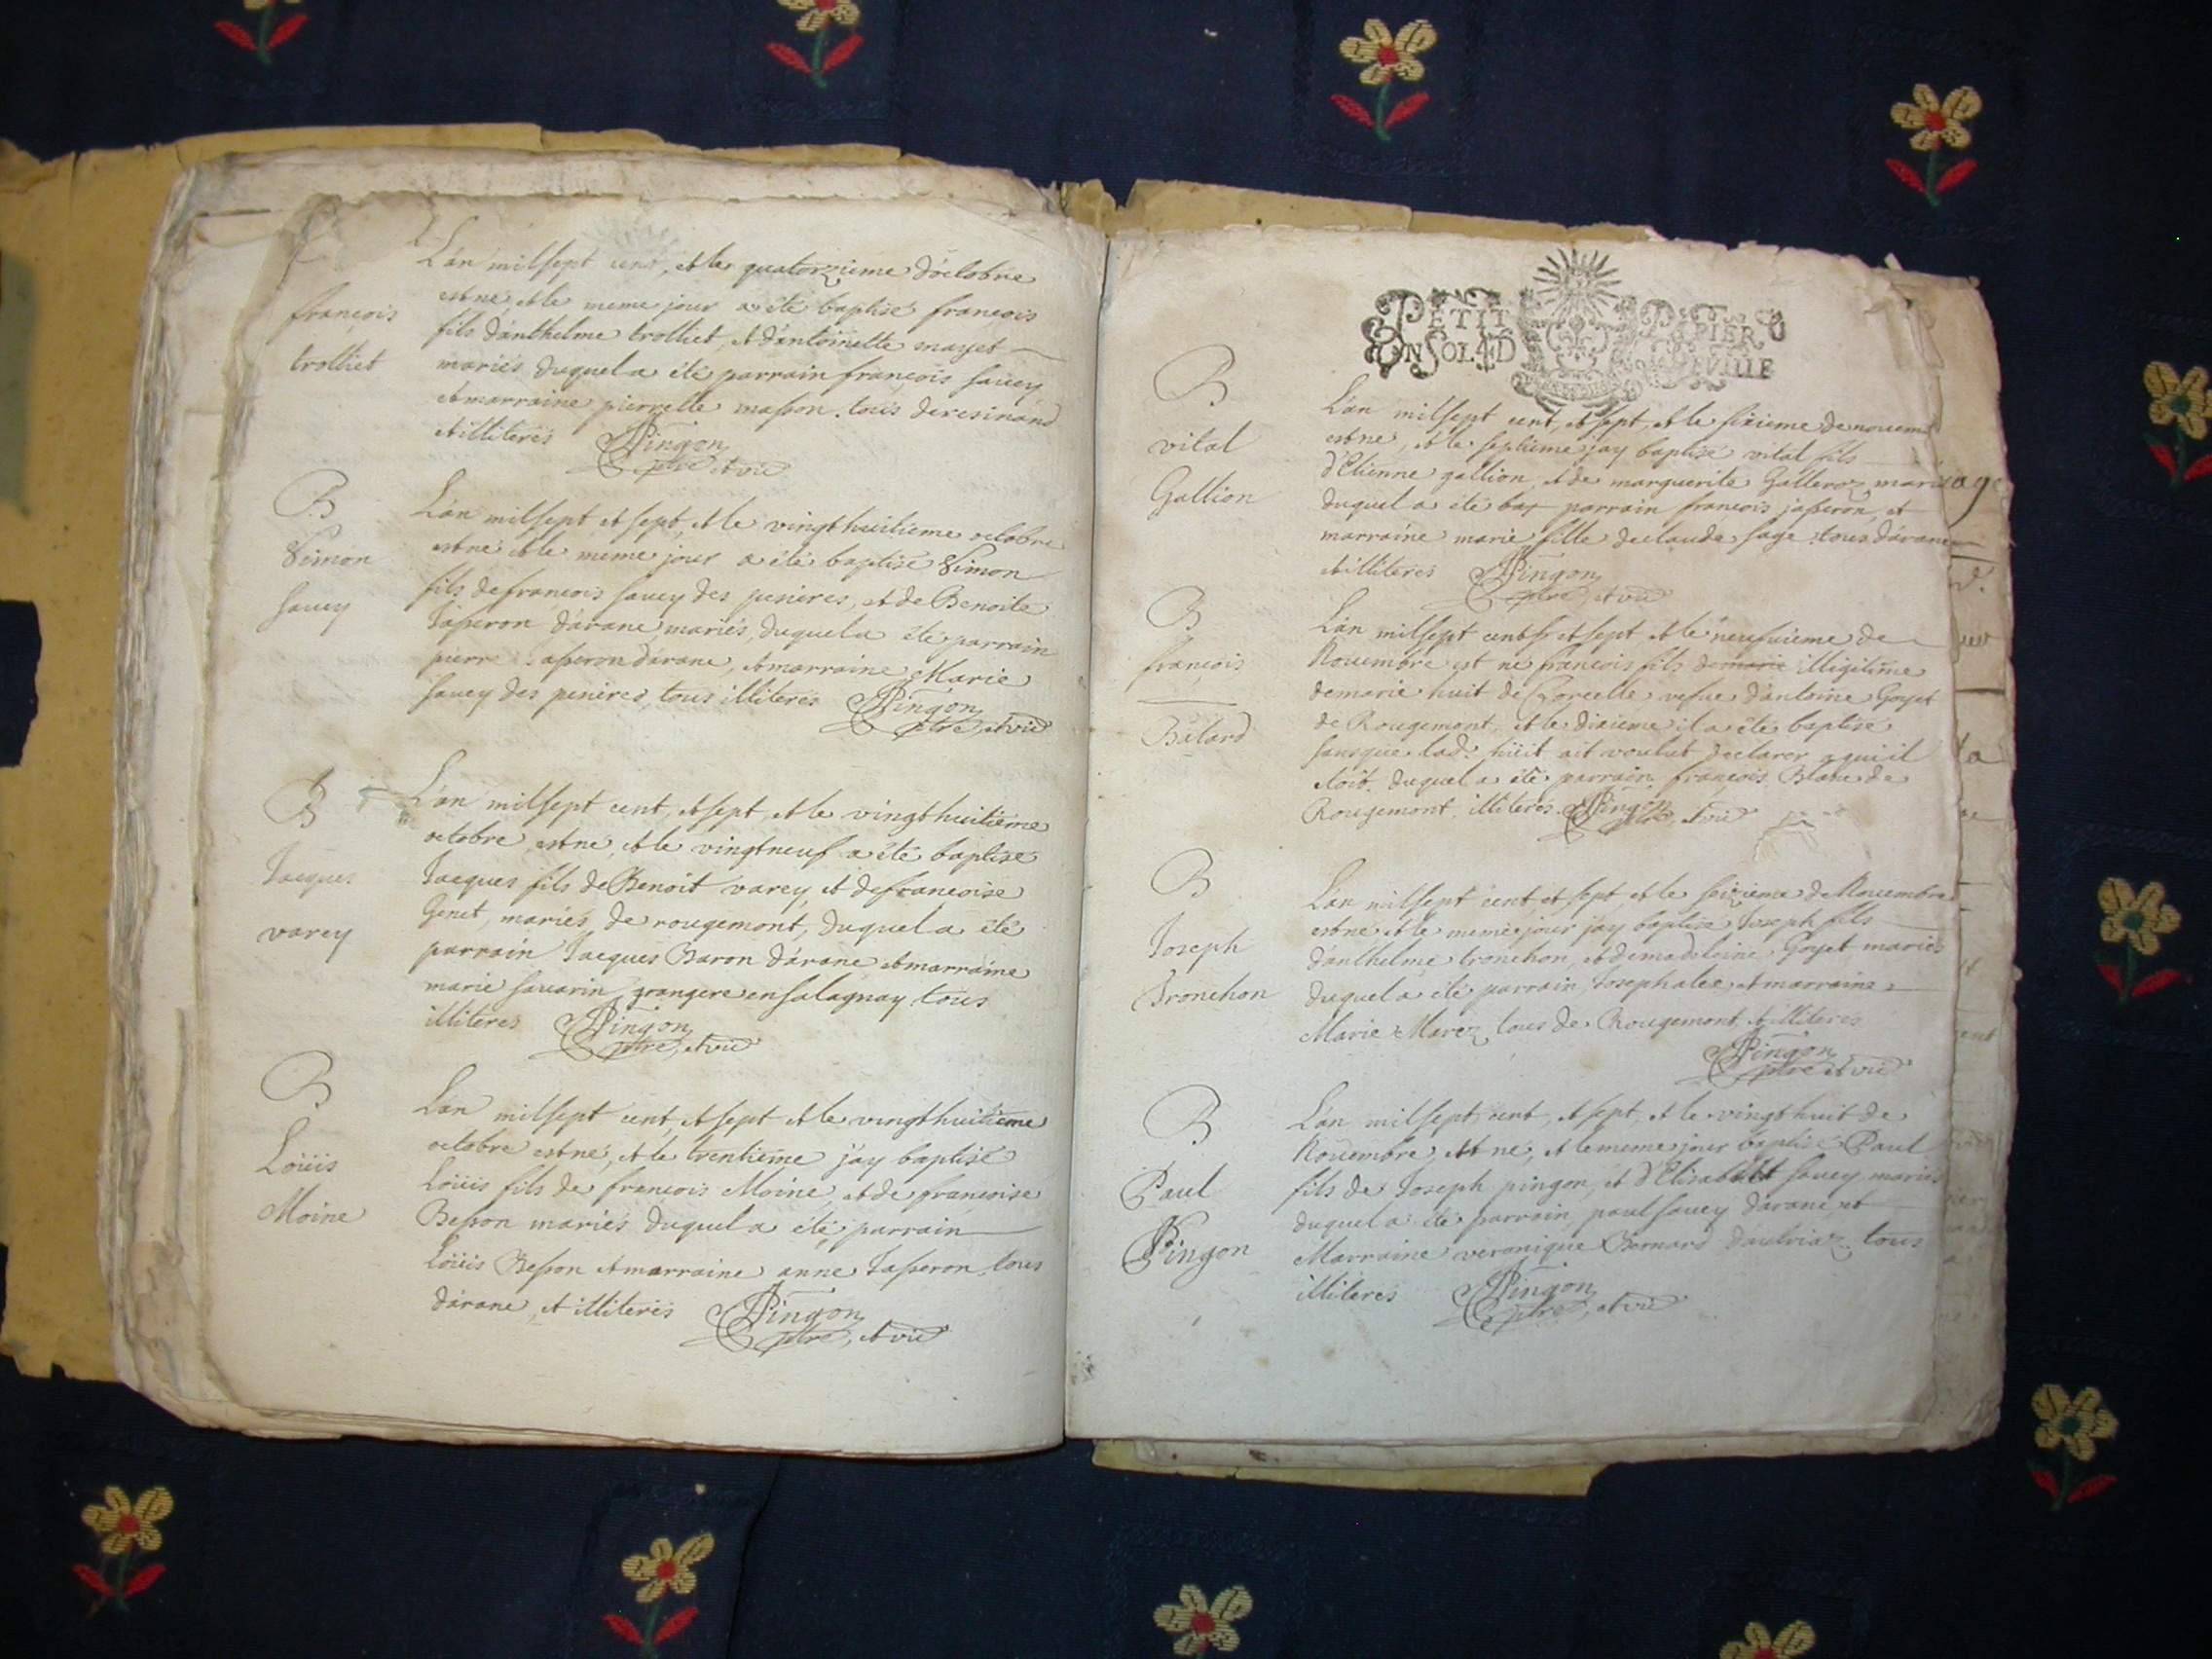 françois
trolliet
L'an milsept cent, et le quatorzieme d'octobre
est né, et le meme jour a été baptisé françois
fils d'anthelme trolliet, et d'antoinette mayet
mariés duquel a été parrain françois savey
et marraine pierrette masson. tous de resinand
et illiterés Pingon
ptre et vic
B
Simon
savey
L'an milsept et sept, et le vingthuitieme octobre
est né et le meme jour a été baptisé Simon
fils de françois savey des penieres, et de Benoite
Jasseron d'arane, mariés, duquel a été parrain
pierre Jasseron d'arane, et marraine Marie
savey des penieres, tous illiterés Pingon
ptre, et vic
B
Jacques
varey
L'an milsept cent, et sept, et le vingthuitieme
octobre est né, et le vingtneuf a été baptisé
Jacques fils de Benoit varey, et de francoise
Genet, mariés de rougemont, duquel a été
parrain Jacques Baron d'arane et marraine
marie savarin grangere en salagnay tous
illiteres Pingon
ptre, et vic
B
Loüis
Moine
L'an milsept cent, et sept et le vingthuitieme
octobre est né, et le trentieme j'ay baptisé
Loüis fils de françois Moine, et de françoise
Besson mariés duquel a été parrain
Loüis Besson et marraine anne Jasseron tous
d'arane, et illiterés Pingon
ptre, et vic
PETIT PAPIER
UN SOL 4 D LE VIIIE
B
vital
Gallion
L'an milsept cent, et sept, et le sixieme de novem
est né, et le septieme jay baptisé vital fils
d'Etienne gallion, et de marguerite Galleroz mariés
duquel a été bap parrain françois jasseron, et
marraine marie fille de claude sage tous d'arane
et illiterés Pingon
ptre, et vic
B
françois
Batard
L'an milsept cent et sept, et le neufvieme de
Novembre est né francois fils demarie illigitime
de marie huit de Corcelle vefve d'antoine Goyet
de Rougemont, et le dixieme il a été baptisé
sans que lad. huit ait voulut declarer a qui il
etoit. duquel a été parrain françois Blanc de
Rougemont illiterés Pingon
ptre, et vic
B
Joseph
Tronchon
L'an milsept cent, et sept, et le seizieme de Novembre
est né et le meme jour jay baptisé Joseph fils
d'anthelme tronchon, et de madeleine Goyet mariés
duquel a été parrain Joseph alex et marraine
Marie Marez tous de Rougemont, et illiteres
Pingon
ptre et vic
B
Paul
Pingon
L'an milsept cent, et sept, et le vingt huit de
Novembre, est né, et le meme jour baptisé Paul
fils de Joseph pingon, et d'Elisabet savey mariés
duquel a été parrain paul savey d'arane, et
Marraine veronique Bernard d'aulriaz tous
illiterés Pingon
ptre, et vic